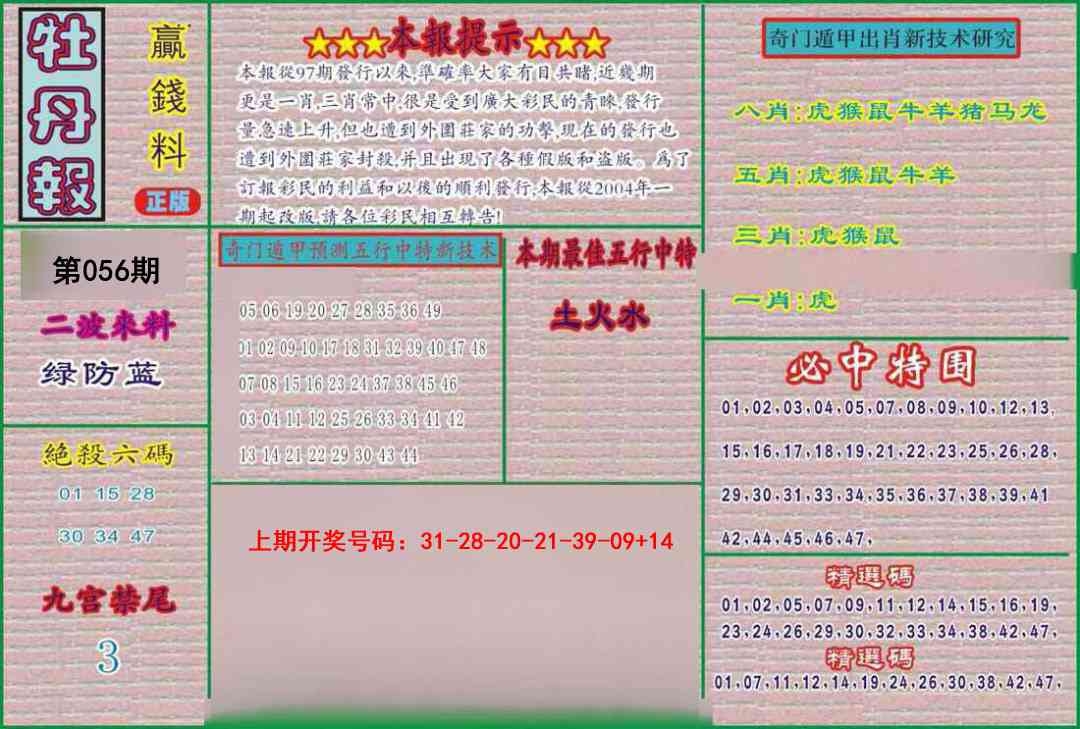 牡丹報
贏錢料
正版
★★★本報提示★★★
本報從97期發行以來,準確率大家有目共睹,近幾期
更是一肖,三肖常中,很是受到廣大彩民的青睞,發行
量急速上升,但也遭到外圍莊家的功擊,現在的發行也
遭到外圍莊家封殺,并且出現了各種假版和盗版。爲了
訂報彩民的利益和以後的順利發行,本報從2004年一
期起改版,請各位彩民相互轉告!
奇门遁甲出肖新技术研究
八肖:虎猴鼠牛羊猪马龙
五肖:虎猴鼠牛羊
三肖:虎猴鼠
一肖:虎
第056期
二波來料
绿防蓝
奇门遁甲预测五行中特新技术
05 06 19 20 27 28 35 36 49
01 02 09 10 17 18 31 32 39 40 47 48
07 08 15 16 23 24 37 38 45 46
03 04 11 12 25 26 33 34 41 42
13 14 21 22 29 30 43 44
本期最佳五行中特
土火水
必中特围
01,02,03,04,05,07,08,09,10,12,13,
15,16,17,18,19,21,22,23,25,26,28,
29,30,31,33,34,35,36,37,38,39,41
42,44,45,46,47,
絕殺六碼
01 15 28
30 34 47
九宫禁尾
3
上期开奖号码：31-28-20-21-39-09+14
精選碼
01,02,05,07,09,11,12,14,15,16,19,
23,24,26,29,30,32,33,34,38,42,47,
精選碼
01,07,11,12,14,19,24,26,30,38,42,47,